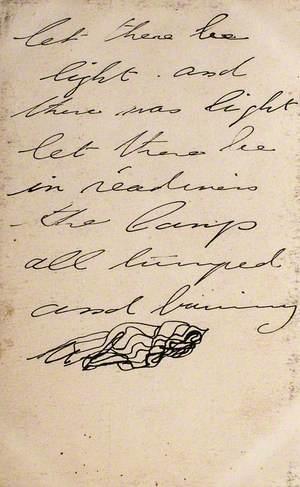 let there be
light . and
there was light
let there be
in readiness
the lamp
all
and burning